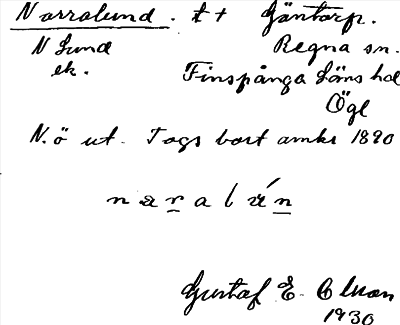 Norralund. t + Gäntorp.
N Lund Regna sn.
ek. Finspånga Läns hd
Ögl
N. ö ut. Togs bort omkr 1890
n a r a l ú n
Gustaf E. Olson
1930